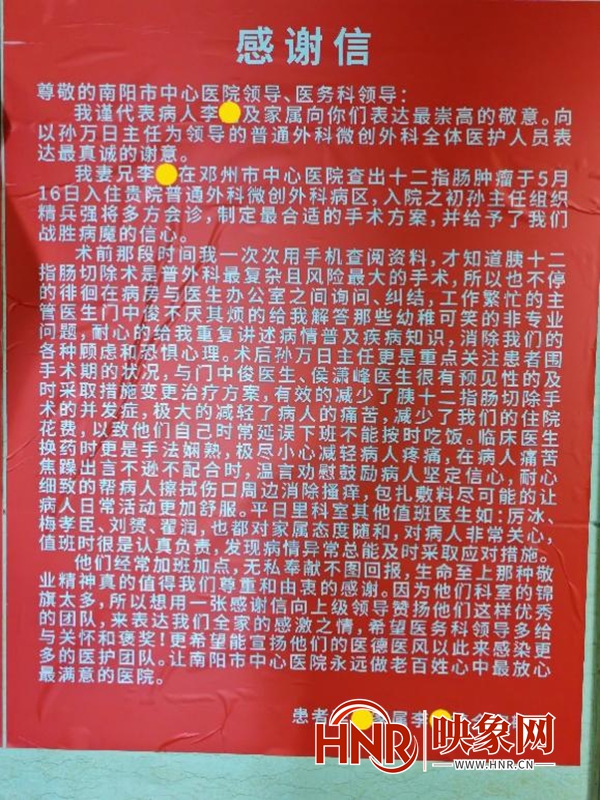 感谢信
尊敬的南阳市中心医院领导、医务科领导：
我谨代表病人李及家属向你们表达最崇高的敬意。向
以孙万日主任为领导的普通外科微创外科全体医护人员表
达最真诚的谢意。
我妻兄李在邓州市中心医院查出十二指肠肿瘤于5月
16日入住贵院普通外科微创外科病区，入院之初孙主任组织
精兵强将多方会诊，制定最合适的手术方案，并给予了我们
战胜病魔的信心。
术前那段时间我一次次用手机查阅资料，才知道胰十二
指肠切除术是普外科最复杂且风险最大的手术，所以也不停
的徘徊在病房与医生办公室之间询问、纠结，工作繁忙的主
管医生门中俊不厌其烦的给我解答那些幼稚可笑的非专业
问题，耐心的给我重复讲述病情普及疾病知识，消除我们的
各种顾虑和恐惧心理。术后孙万日主任更是重点关注患者围
手术期的状况，与门中俊医生、侯潇峰医生很有预见性的及
时采取措施变更治疗方案，有效的减少了胰十二指肠切除手
术的并发症，极大的减轻了病人的痛苦，减少了我们的住院
花费，以致他们自己时常延误下班不能按时吃饭。临床医生
换药时更是手法娴熟，极尽小心减轻病人疼痛，在病人痛苦
焦躁出言不逊不配合时，温言劝慰鼓励病人坚定信心，耐心
细致的帮病人擦拭伤口周边消除瘙痒，包扎敷料尽可能的让
病人日常活动更加舒服。平日里科室其他值班医生如：厉冰、
梅孝臣、刘赟、翟润，也都对家属态度随和，对病人非常关心，
值班时很是认真负责，发现病情异常总能及时采取应对措施。
他们经常加班加点，无私奉献不图回报，生命至上那种敬
业精神真的值得我们尊重和由衷的感谢。因为他们科室的锦
旗太多，所以想用一张感谢信向上级领导赞扬他们这样优秀
的团队，来表达我们全家的感激之情，希望医务科领导多给
与关怀和褒奖！更希望能宣扬他们的医德医风以此来感染更
多的医护团队。让南阳市中心医院永远做老百姓心中最放心
最满意的医院。
患者 属李
HNR 映象网
WWW.HNR.CN